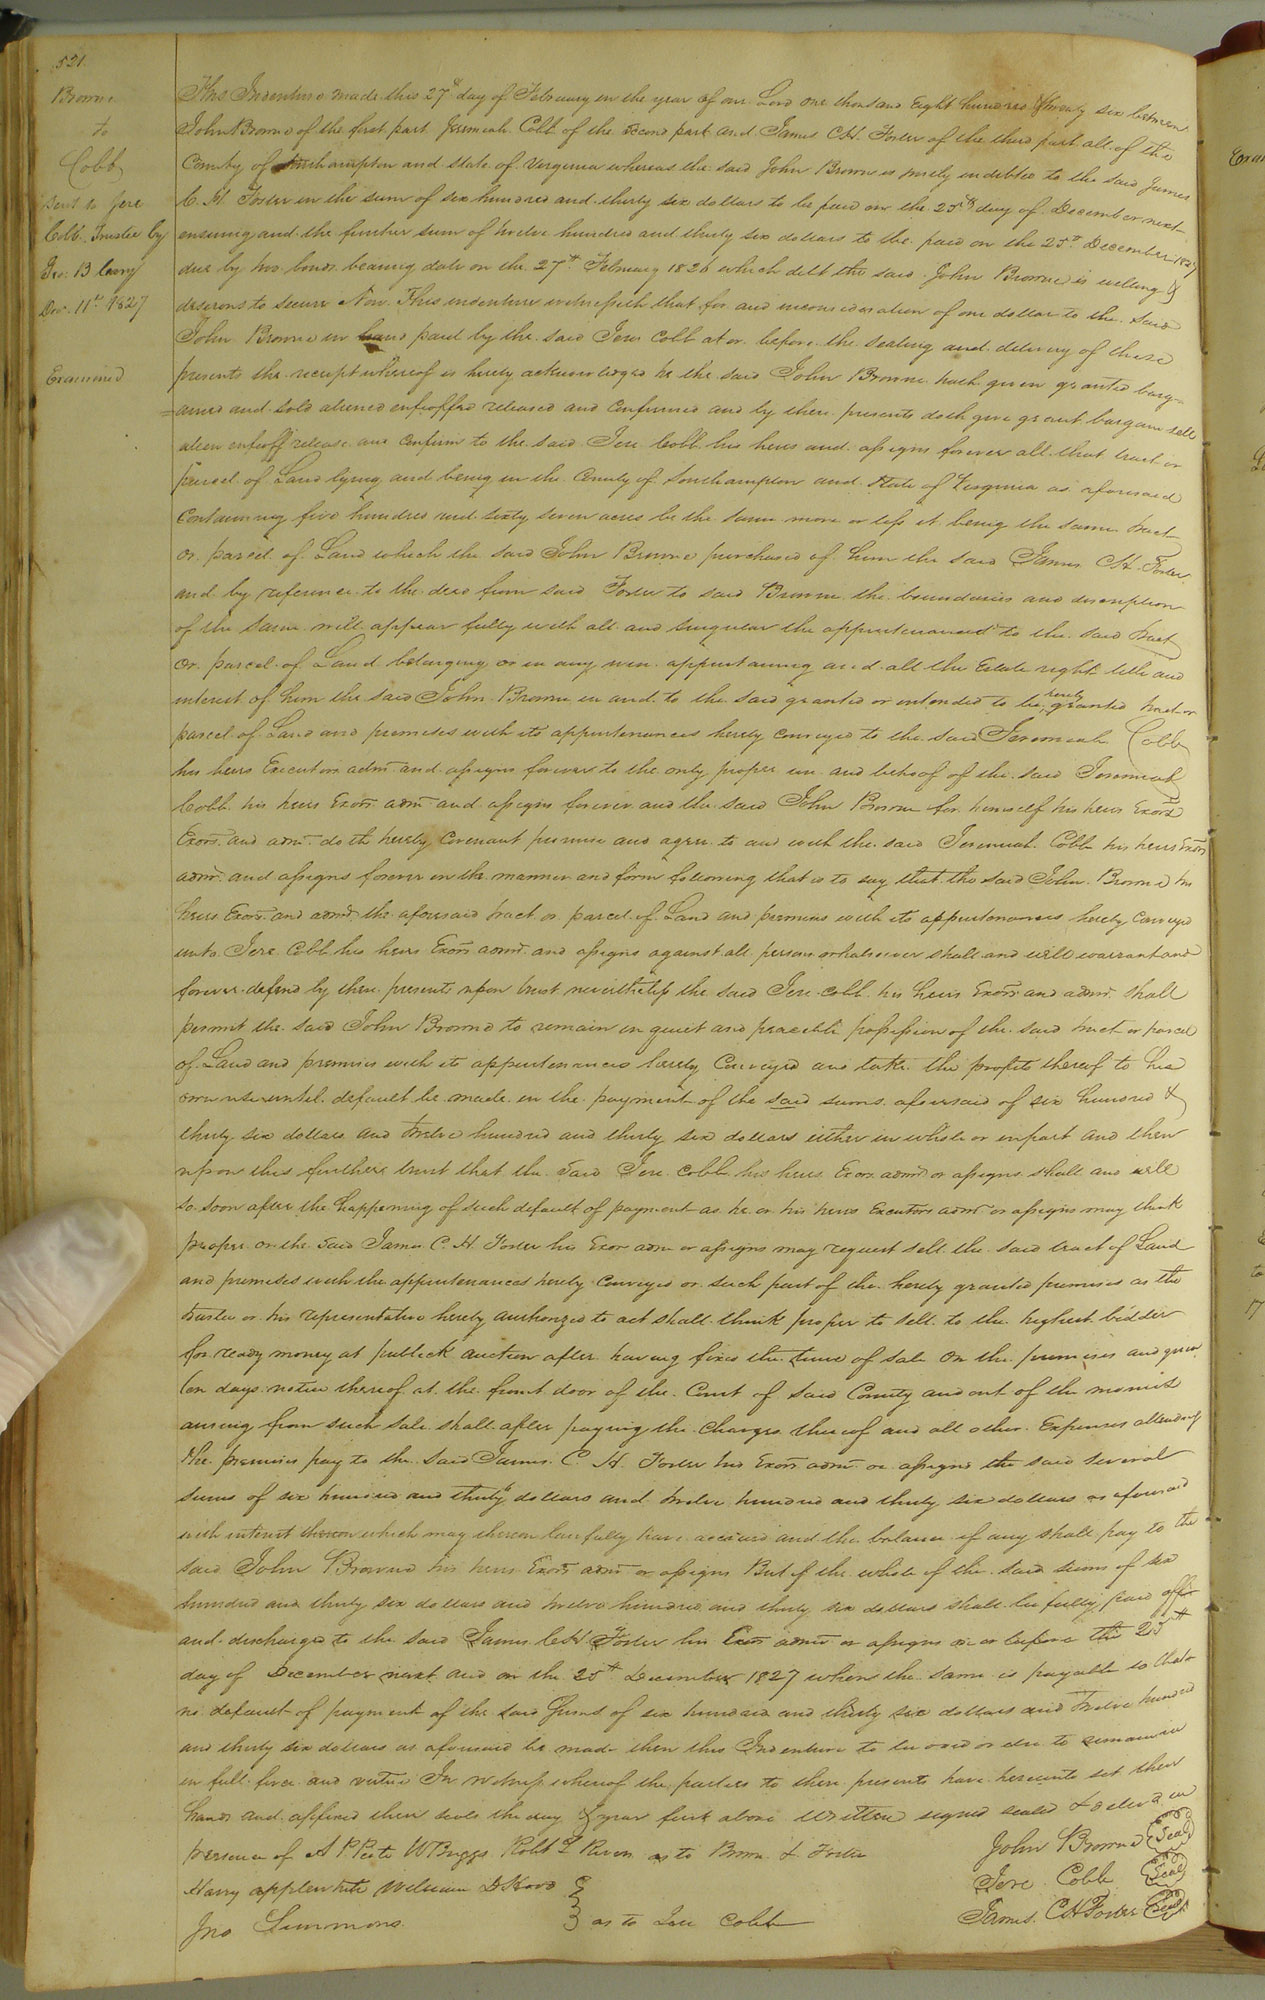 521.
Browne
to
Cobb
Sent to Jere
Cobb Trustee by
Jno: B Cary
Dec. 11th 1827
Examined
This Indenture made this 27th day of February in the year of our Lord one thousand Eight hundred & twenty six between
John Browne of the first part Jeremiah Cobb of the second part and James C H. Foster of the third part all of the
County of Southampton and State of Virginia whereas the said John Browne is justly indebted to the said James
C. H. Foster in the sum of six hundred and thirty six dollars to be paid on the 25th day of December next
ensuing and the further sum of twelve hundred and thirty six dollars to the paid on the 25th December 1827
due by two bonds bearing date on the 27th February 1826 which debt the said John Browne is willing &
desirous to secure Now This indenture witnesseth that for and inconsideration of one dollar to the said
John Browne in hand paid by the said Jere Cobb at or before the sealing and delivery of these
presents the receipt whereof is hereby acknowledged he the said John Browne hath given granted barg-
=ained and sold aliened enfeoffed released and confirmed and by these presents doth give grant bargain sell
alien enfeoff release and confirm to the said Jere Cobb his heirs and assigns forever all that tract or
parcel of Land lying and being in the County of Southampton and State of Virginia as aforesaid
Containing five hundred and sixty seven acres be the same more or less it being the same tract
or parcel of Land which the said John Browne purchased of him the said James C H. Foster
and by reference to the deed from said Foster to said Browne the boundaries and description
of the same will appear fully with all and singular the appurtenances to the said tract
or parcel of Land belonging or in any wise appertaining and all the Estate right title and
interest of him the said John Browne in and to the said granted or intended to be hereby granted tract or
parcel of Land and premises with its appurtenances hereby conveyed to the said Jeremiah Cobb
his heirs Executors admrs and assigns forever to the only proper use and behoof of the said Jeremiah
Cobb his heirs Exors admrs and assigns forever and the said John Browne for himself his heirs Exors
Exors and admrs doth hereby Covenant promise and agree to and with the said Jeremiah Cobb his heirs Exors
admrs and assigns forever in the manner and form following that is to say that the said John Browne his
heirs Exors and admrs the aforesaid tract or parcel of Land and premises with its appurtenances hereby conveyed
unto Jere Cobb his heirs Exors admrs and assigns against all persons whatsoever shall and will warrant and
forever defend by these presents upon trust nevertheless the said Jere Cobb his heirs Exors and admrs shall
permit the said John Browne to remain in quiet and peaceble possession of the said tract or parcel
of Land and premises with its appurtenances hereby Conveyed and take the profits thereof to his
own use until default be made in the payment of the said sums aforesaid of six hundred &
thirty six dollars and twelve hundred and thirty six dollars either in whole or in part and then
upon this further trust that the said Jere Cobb his heirs Exors admrs or assigns shall and will
so soon after the happening of such default of payment as he or his heirs Executors admrs or assigns may think
proper or the said James C. H. Foster his Exors admrs or assigns may request sell the said tract of Land
and premises with the appurtenances hereby Conveyed or such part of the hereby granted premises as the
trustee or his representative hereby authorized to act shall think proper to sell to the highest bidder
for ready money at publick auction after having fixed the time of sale on the premises and given
ten days notice thereof at the front door of the Court of said County and out of the monies
arising from such sale shall after paying the charges thereof and all other Expenses attending
the premises pay to the said James C H. Foster his Exors admrs or assigns the said several
sums of six hundred and thirty 6 dollars and twelve hundred and thirty six dollars as aforesaid
with interest thereon which may thereon lawfully have accrued and the balance if any shall pay to the
said John Browne his heirs Exors admrs or assigns But if the whole of the said sums of six
hundred and thirty six dollars and twelve hundred and thirty six dollars shall be fully paid off
and discharged to the said James C H Foster his Exors admrs or assigns on or before the 25th
day of December next and on the 25th December 1827 when the same is payable so that
no default of payment of the said sums of six hundred and thirty six dollars and Twelve hundred
and thirty six dollars as aforesaid be made then this Indenture to be void or else to remain in
in full force and virtue In witness whereof the parties to these presents have hereunto set their
hands and affixed their seals the day & year first above Written signed sealed & deliverd in
presence of A P Peete W Briggs Robt as to Brown & Foster
John Browne Seal
Harry applewhite William D Hood
Jere Cobb Seal
Jno Simmons as to Jere Cobb
James C H Foster Seal